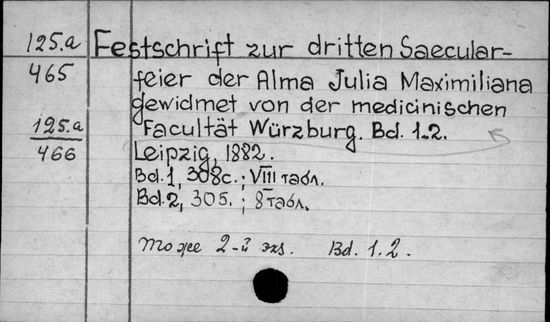 125.a Festschrift zur dritten Saecular-
465 feier der Alma Julia Maximiliana
gewidmet von der medicinischen
125.a Facultät Würzburg. Bd. 1-2.
466 Leipzig, 1882.
Bd.1, 308с.; VIII табл.
Bd.2, 305.; 8 табл.
тоже 2-й экз. Bd. 1.2.